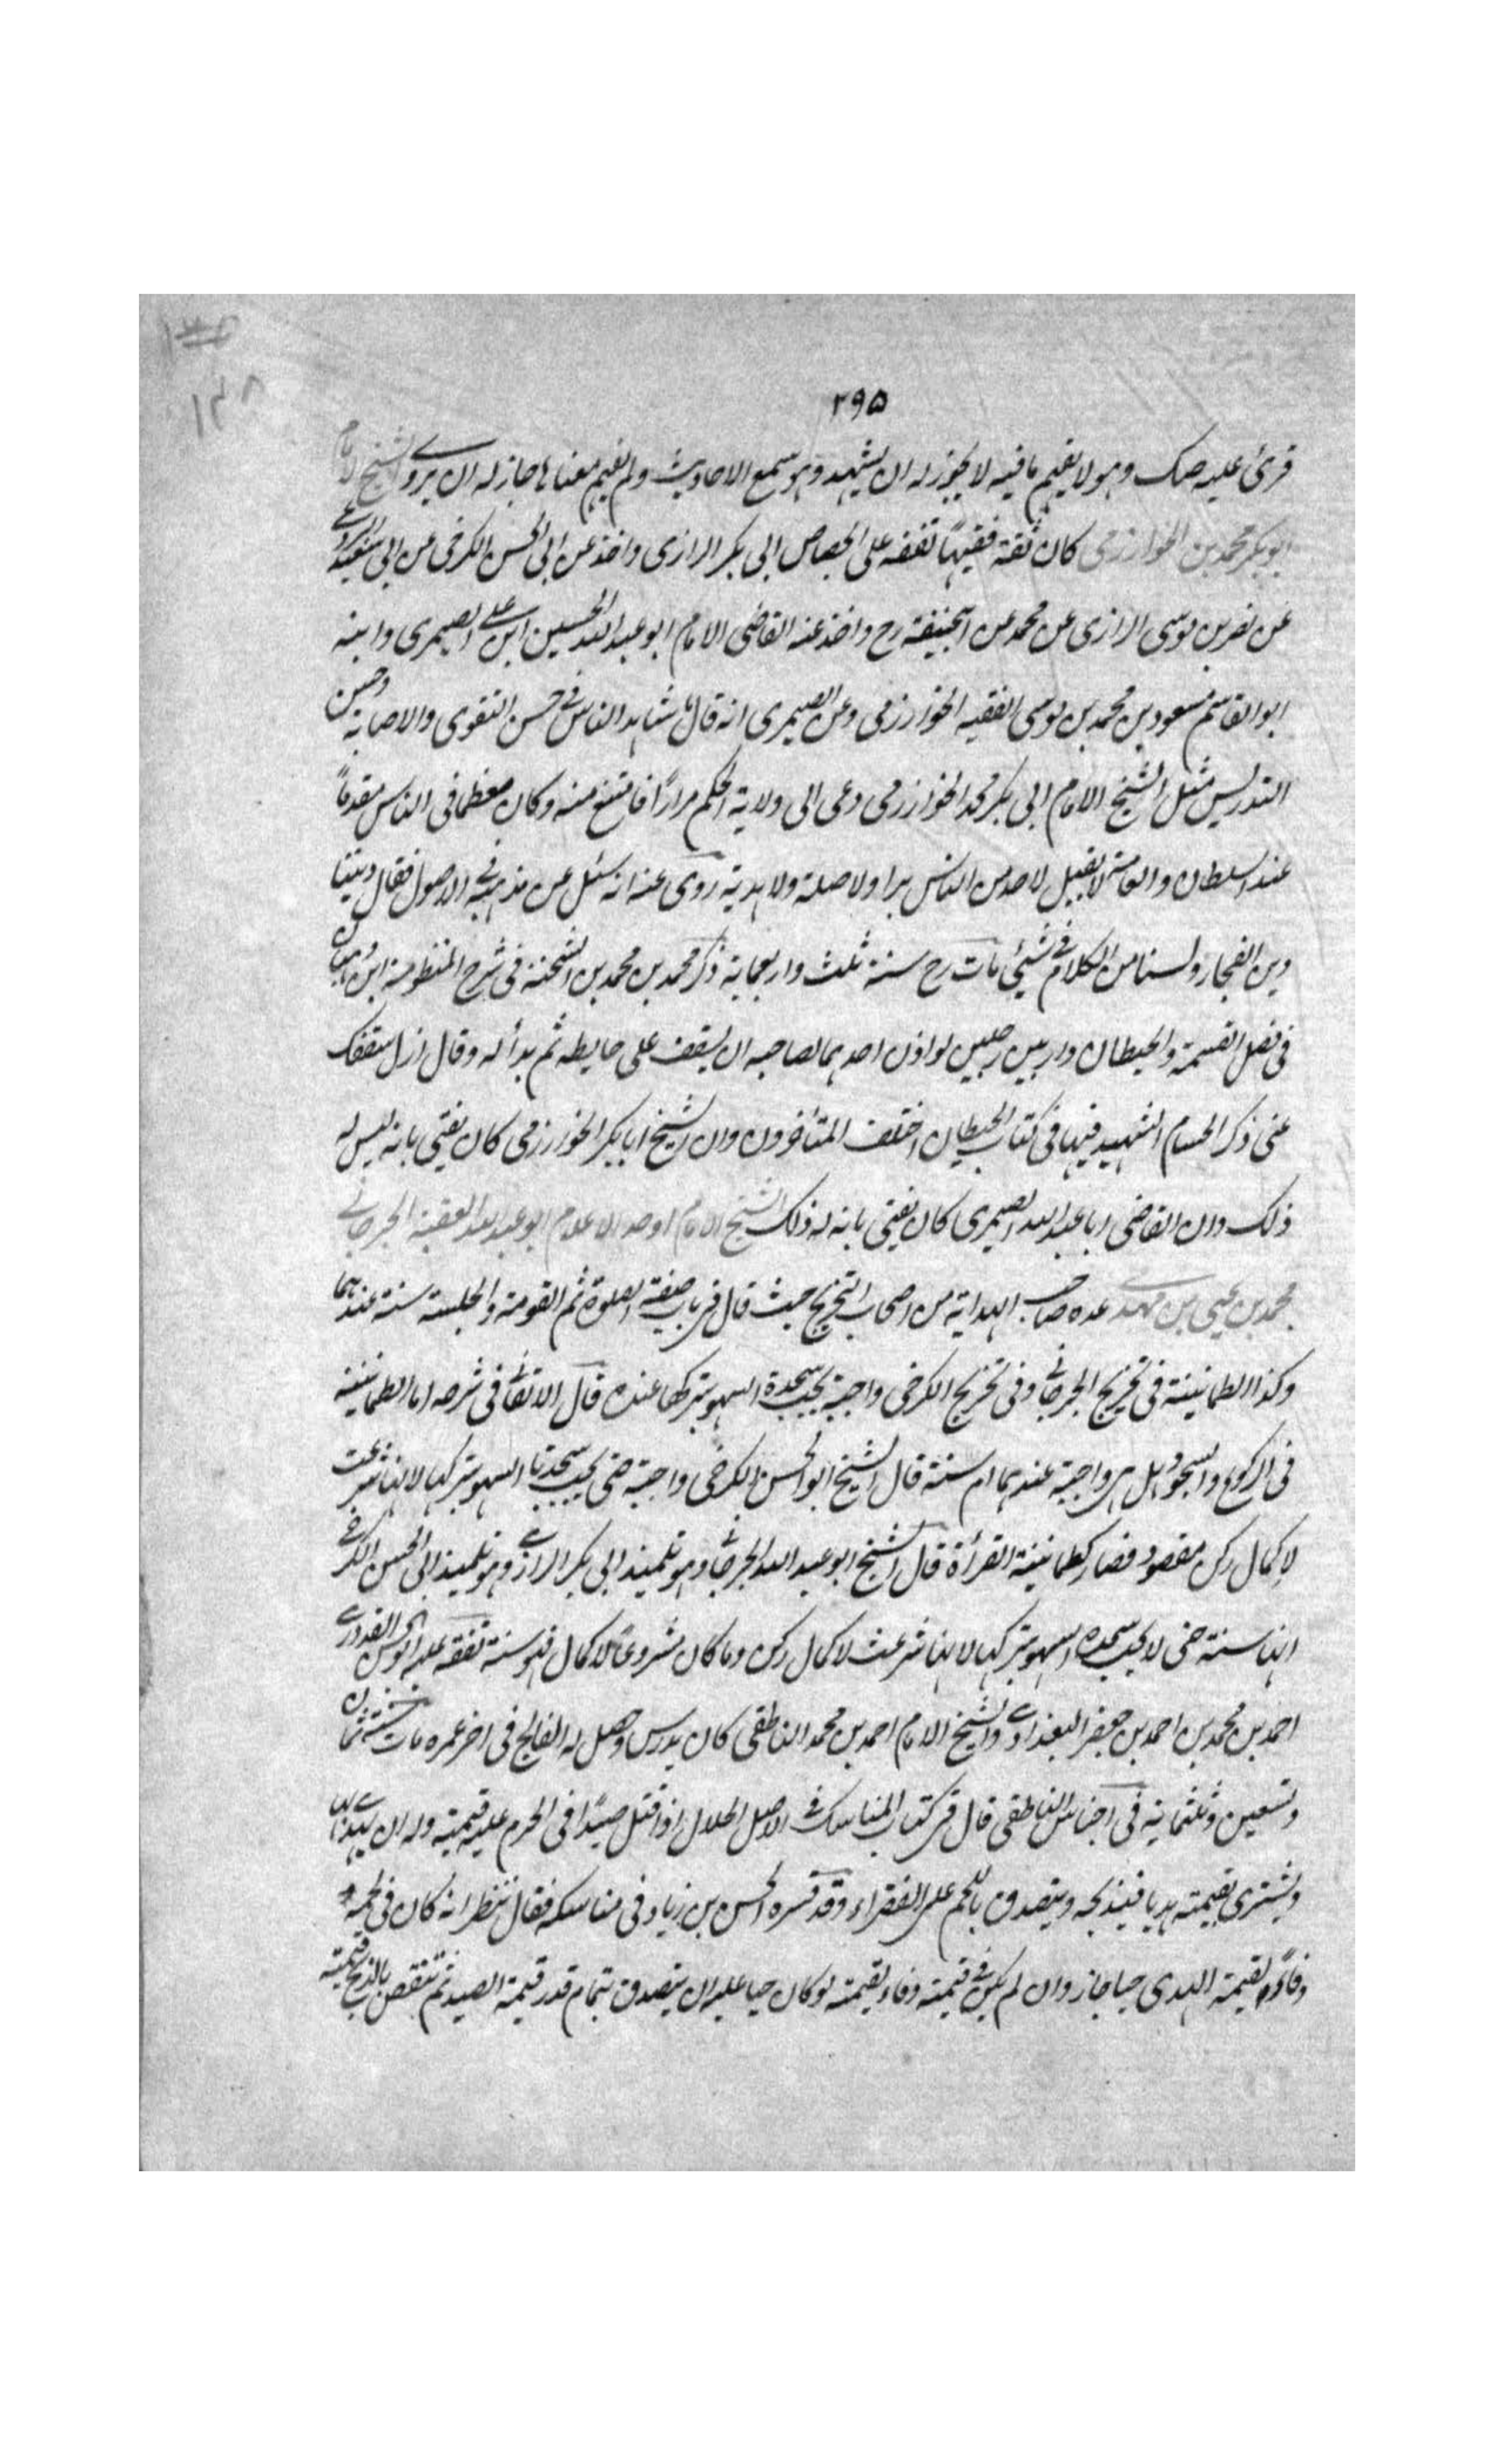 ۲۹۵
قرئ عليه صك وهو لا يفهم ما فيه لا يجوز له ان يشهد وهو سمع الاحاديث ولم يفهم معناها جاز له ان يروى الشيخ الامام
ابو بكر محمد بن الخوارزمى كان ثقة فقيهاً تفقه على الجصاص ابى بكر الرازى واخذ عن ابى الحسن الكرخى عن ابى سعيد البردعى
عن نصر بن موسى الرازى عن محمد عن ابيحنيفة رح واخذ عنه القاضى الامام ابو عبد الله الحسين ابن على الصيمرى وابنه
ابو القاسم مسعود بن محمد بن موسى الفقيه الخوارزمى وعن الصيمرى انه قال ما شاهد الناس فى حسن الفتوى والاصابة وحسن
التدريس مثل الشيخ الامام ابى بكر محمد الخوارزمى دعى الى ولاية الحكم مراراً فامتنع منه وكان معظما فى الناس مقدماً
عند السلطان والعامة لا يقبل لاحد من الناس برا ولا صلة ولا هدية روى عنه انه سئل عن مذهبه فى الاصول فقال ديننا
دين العجايز ولسنا من الكلام فى شيئ مات رح سنة ثلث واربعماية ذكر محمد بن محمد بن الشحنة فى شرح المنظومة ابن وهبان
فى فصل القسمة والحيطان دار بين رجلين لو اذن احدهما لصاحبه ان يسقف على حايطه ثم بدأ له وقال ازل سقفك
عنى ذكر الحسام الشهيد فيها فى كتاب الحيطان اختلف المتأخرون وان الشيخ ابا بكر الخوارزمى كان يفتى بانه ليس له
ذلك وان القاضى ابا عبد الله الصيمرى كان يفتى بانه له ذلك الشيخ الامام اوحد الاعلام ابو عبد الله الفقيه الجرجانى
محمد بن يحيى بن مهدى عده صاحب الهداية من اصحاب التخريج حيث قال فى باب صفة الصلوة ثم القومة والجلسة سنة عندهما
وكذا الطمانينة فى تخريج الجرجانى وفى تخريج الكرخى واجبة يجب سجدة السهو بتركها عنده قال الاتقانى فى شرحه اما الطمانينة
فى الركوع والسجود هل هى واجبة عندهما ام سنة قال الشيخ ابو الحسن الكرخى واجبة حتى يجب سجدتا السهو بتركها لانها شرعت
لاكمال ركن مقصود فصار كطمانينة القرأة قال الشيخ ابو عبد الله الجرجانى وهو تلميذ ابى بكر الرازى وهو تلميذ ابى الحسن الكرخى
انها سنة حتى لا يجب سجدة السهو بتركها لانها شرعت لاكمال ركن وما كان مشروعاً لاكمال فهو سنة تفقه عليه ابو الحسن القدورى
احمد بن محمد بن احمد بن جعفر البغدادى والشيخ الامام احمد بن محمد الناطفى كان يدرس وحصل له الفالج فى اخر عمره مات سنة ثمان
وتسعين وثلثماية فى اجناس الناطفى قال فى كتاب المناسك فى الاصل الحلال اذا قتل صيداً فى الحرم عليه قيمته وله ان يهدى بها
ويشترى بقيمته هديا فيذبحه ويتصدق باللحم على الفقراء وقد فسره الحسن بن زياد فى مناسكه فقال ننظر انه كان فى لحمه
وفاؤه بقيمة الهدى حيا جاز وان لم يكن فى قيمته وفاء بقيمته لو كان حيا عليه ان يتصدق بتمام قدر قيمة الصيد ثم تنقص بالذبح قيمته